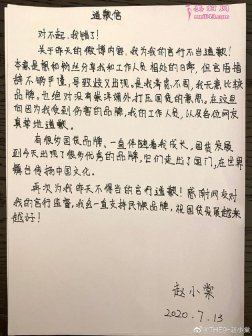 道歉信
对不起,我错了!
关于昨天的微博内容,我为我的言行不当道歉!
本意是跟粉丝分享我和工作人员相处的日常,但言语措
辞不够严谨,导致歧义出现,是我考虑不周,我无意比较
品牌,也绝对没有崇洋媚外、打压国货的意思,在这里
向因为我受到伤害的品牌,我的工作人员,以及各位网友
真挚地道歉。
有很多国货品牌,一直伴随着我成长,国货发展
到今天出现了很多优秀的品牌,它们走出了国门,在世界
舞台传扬中国文化。
再次为我昨天不得当的言行道歉!感谢网友对
我的言行监督,我会一直支持民族品牌,祝国货发展越来
越好!
赵小棠
2020.7.13
@THE9-赵小棠